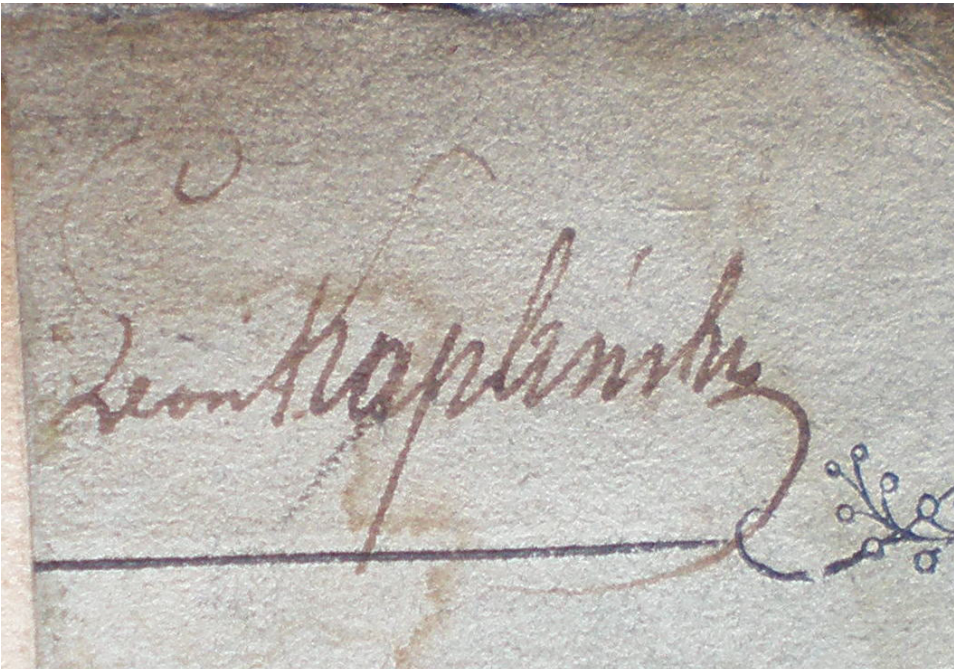 Leon Kapliński